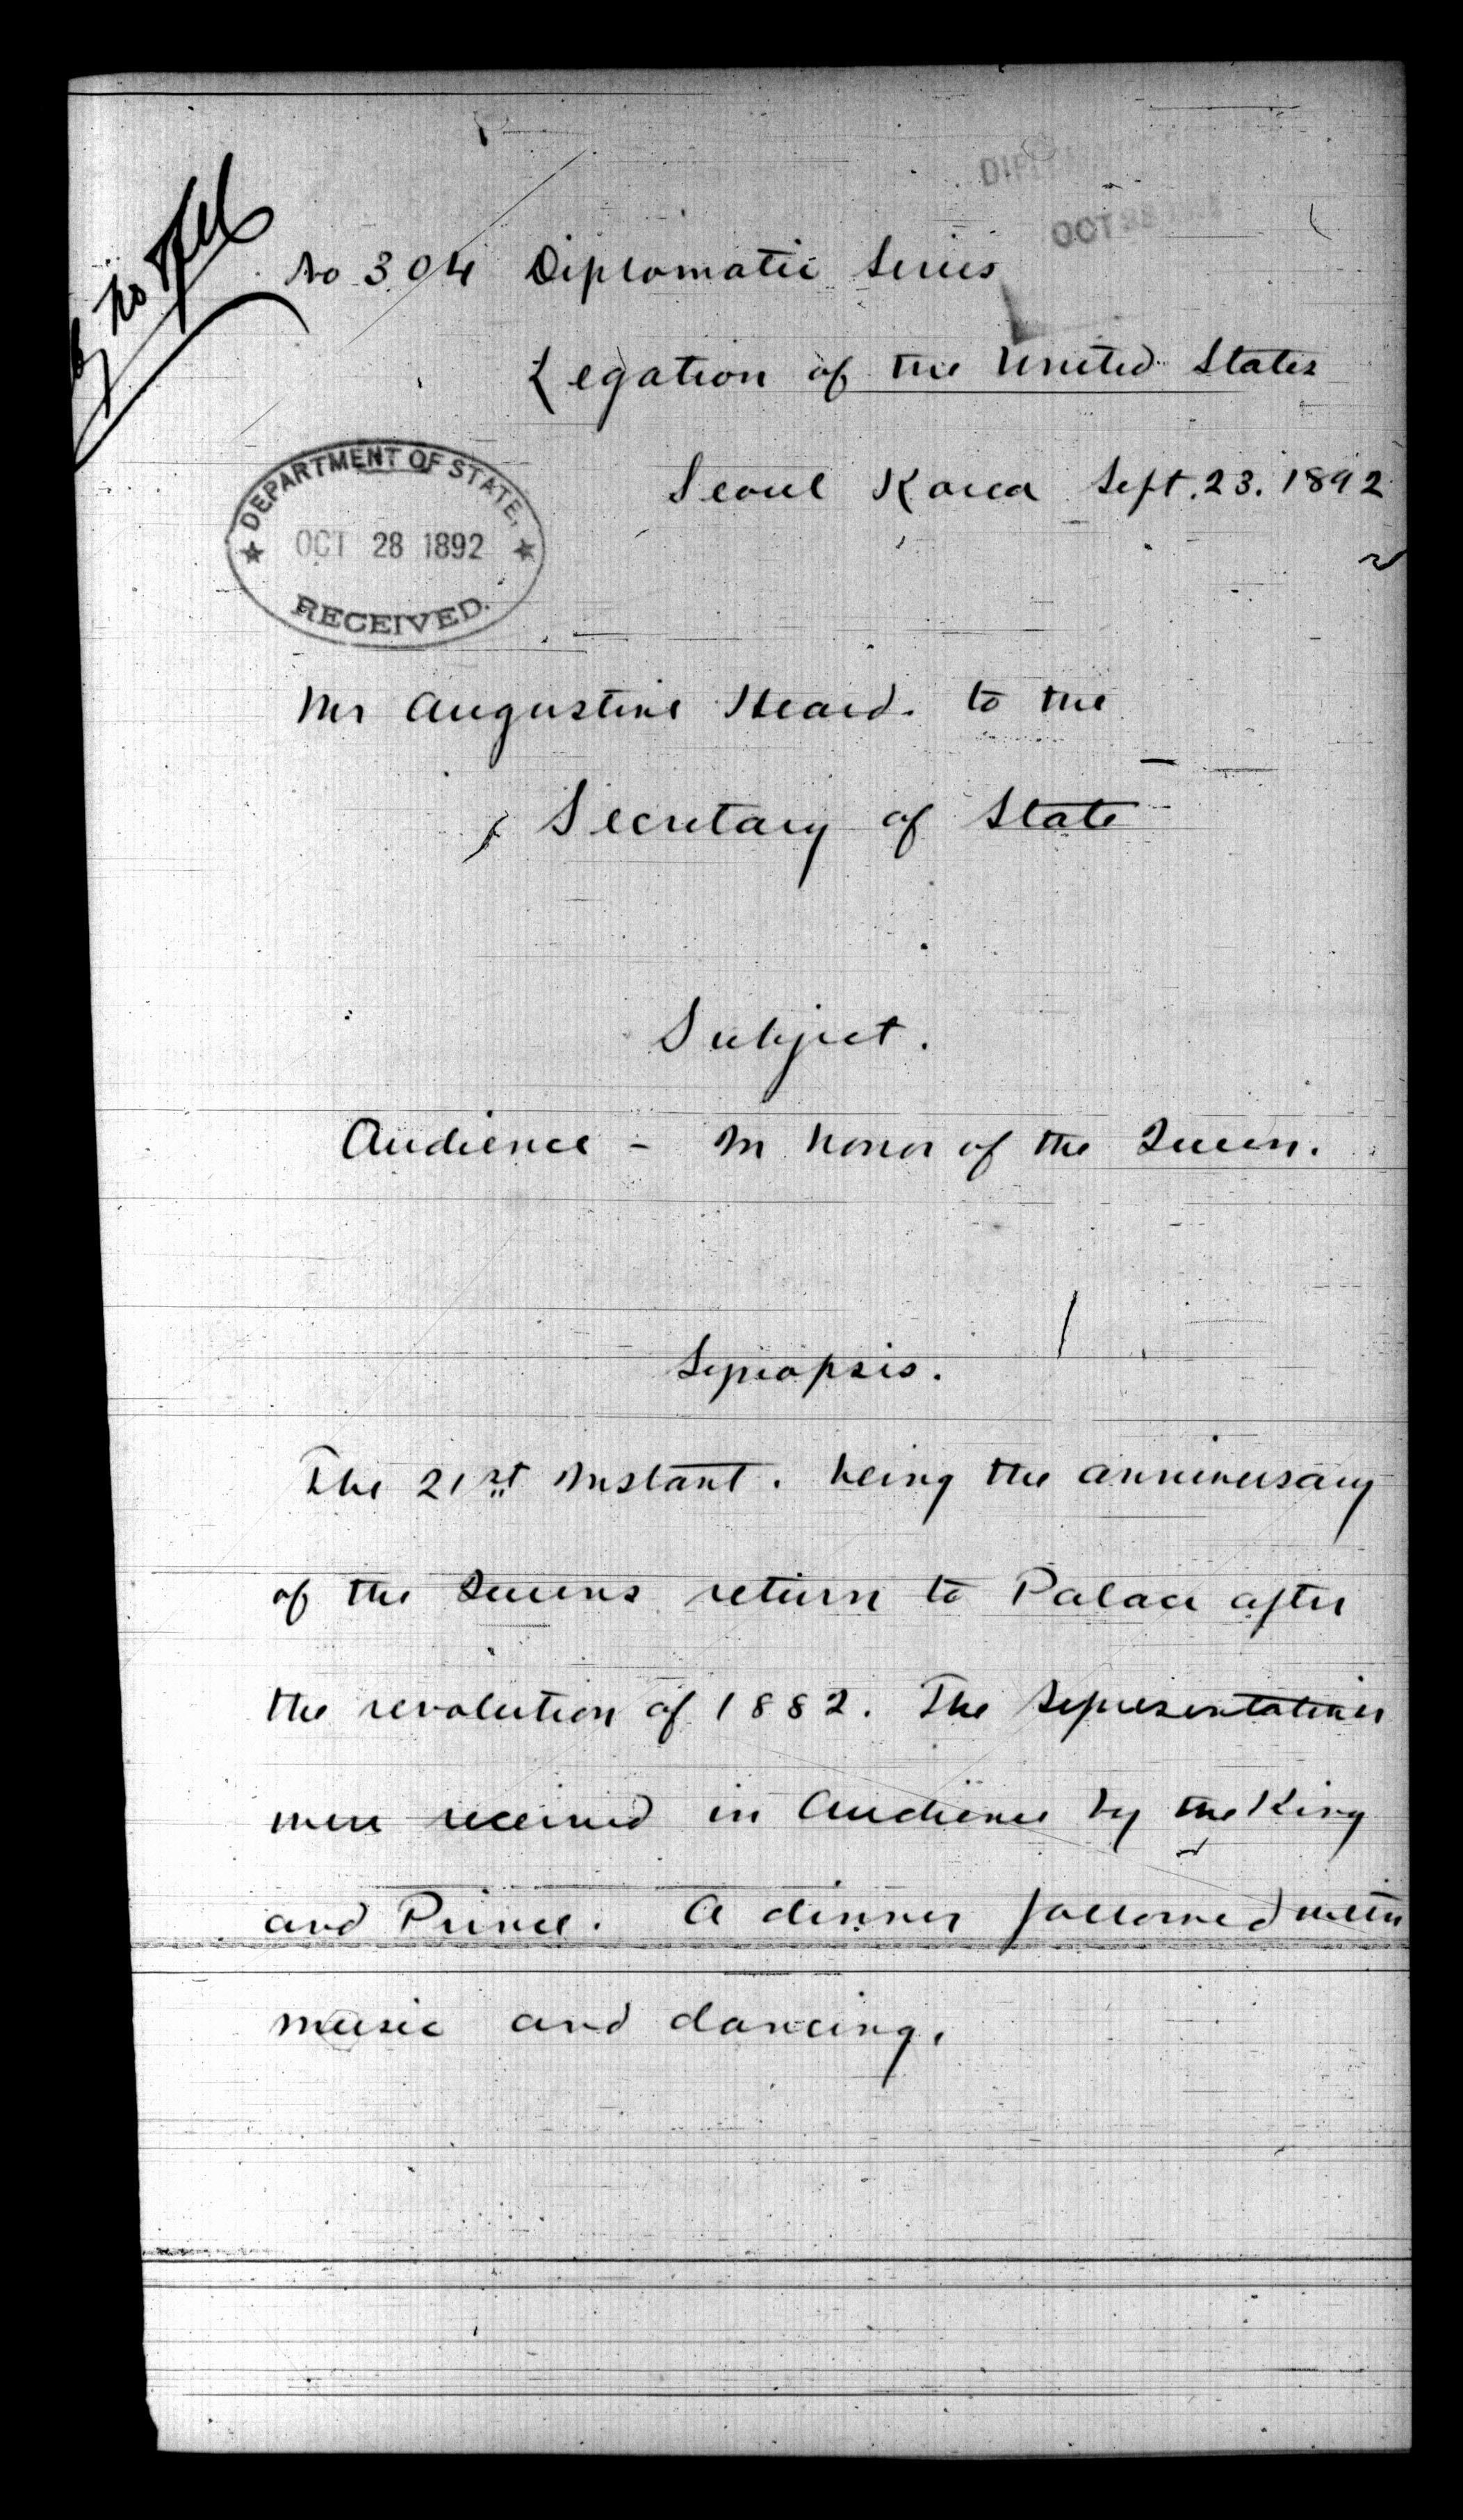 DIPL
OCT 28
No 304 Diplomatic Series
Legation of the United States
Seoul Korea Sept. 23. 1892
DEPARTMENT OF STATE,
OCT 28 1892
RECEIVED.
Mr Augustine Heard. to the
Secretary of State
Subject.
Audience - In honor of the Queen.
Synopsis.
The 21st Instant. being the anniversary
of the Queens return to Palace after
the revolution of 1882. The Representatives
were received in Audience by the King
and Prince. A dinner followed with
music and dancing.